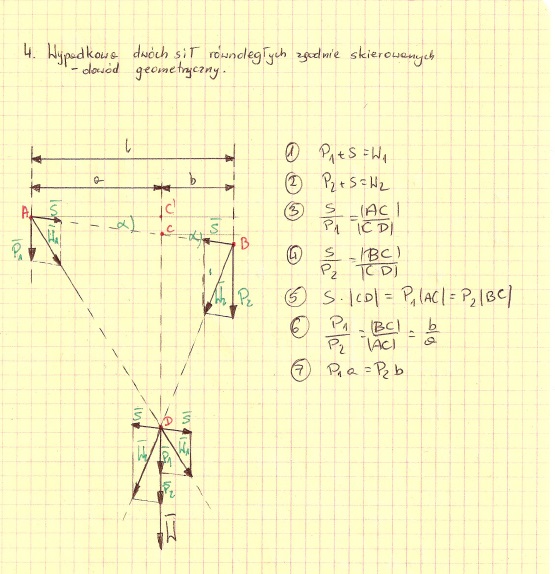 4. Wypadkowa dwóch sił równoległych zgodnie skierowanych
- dowód geometryczny.
l
a b
A S̅ α) C' C α) S̅ B
P̅₁ W̅₁ W̅₂ P̅₂
① P₁+S=W₁
② P₂+S=W₂
③ S/P₁ = |AC|/|CD|
④ S/P₂ = |BC|/|CD|
⑤ S·|CD| = P₁|AC| = P₂|BC|
⑥ P₁/P₂ = |BC|/|AC| = b/a
⑦ P₁a = P₂b
S̅ D S̅
W̅₂ P̅₁ W̅₁
P̅₂
W̅